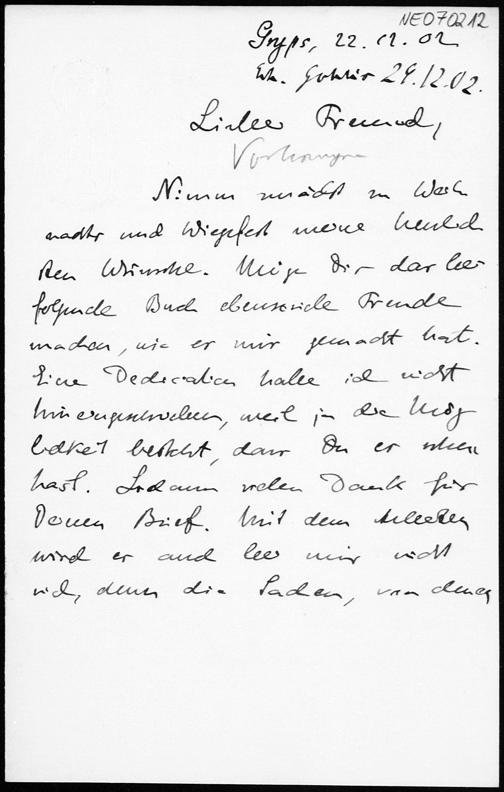 NE070212
Gryps, 22.12.02
Erh. 29.12.02.
Lieber Freund,
Nimm zunächst zu Weih
nachten und Wiegefest meine herzlich
sten Wünsche. Möge Dir das bei
folgende Buch ebensoviele Freude
machen, wie es mir gemacht hat.
Eine Dedication habe ich nicht
hineingeschrieben, weil ja die Mög
lichkeit besteht, dass Du es schon
hast. Sodann vielen Dank für
Deinen Brief. Mit dem Arbeiten
wird es auch bei mir nicht
viel, denn die Sachen, von denen